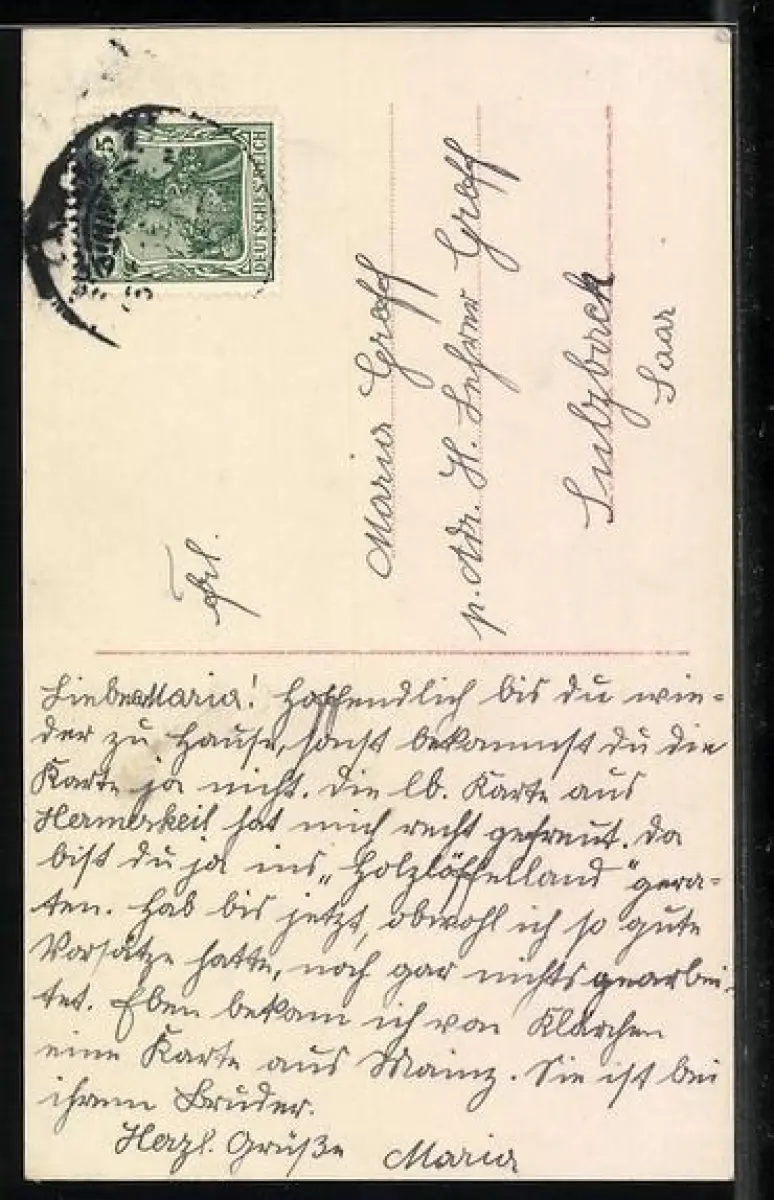 5
DEUTSCHES REICH
Frl.
Maria Greff
p. Adr. H. Lehrer Greff
Sulzback
Saar
Liebe Maria! Hoffendlich bis du wie-
der zu Hause, sonst bekommst du die
Karte ja nicht. Die lb. Karte aus
Hermerkeil hat mich recht gefreut. Da
bist du ja ins „Holzlöffelland" gera-
ten. Hab bis jetzt, obwohl ich so gute
Vorsätze hatte, noch gar nichts gearbei-
tet. Eben bekam ich von Klärchen
eine Karte aus Mainz. Sie ist bei
ihrem Bruder.
Herzl. Grüße Maria